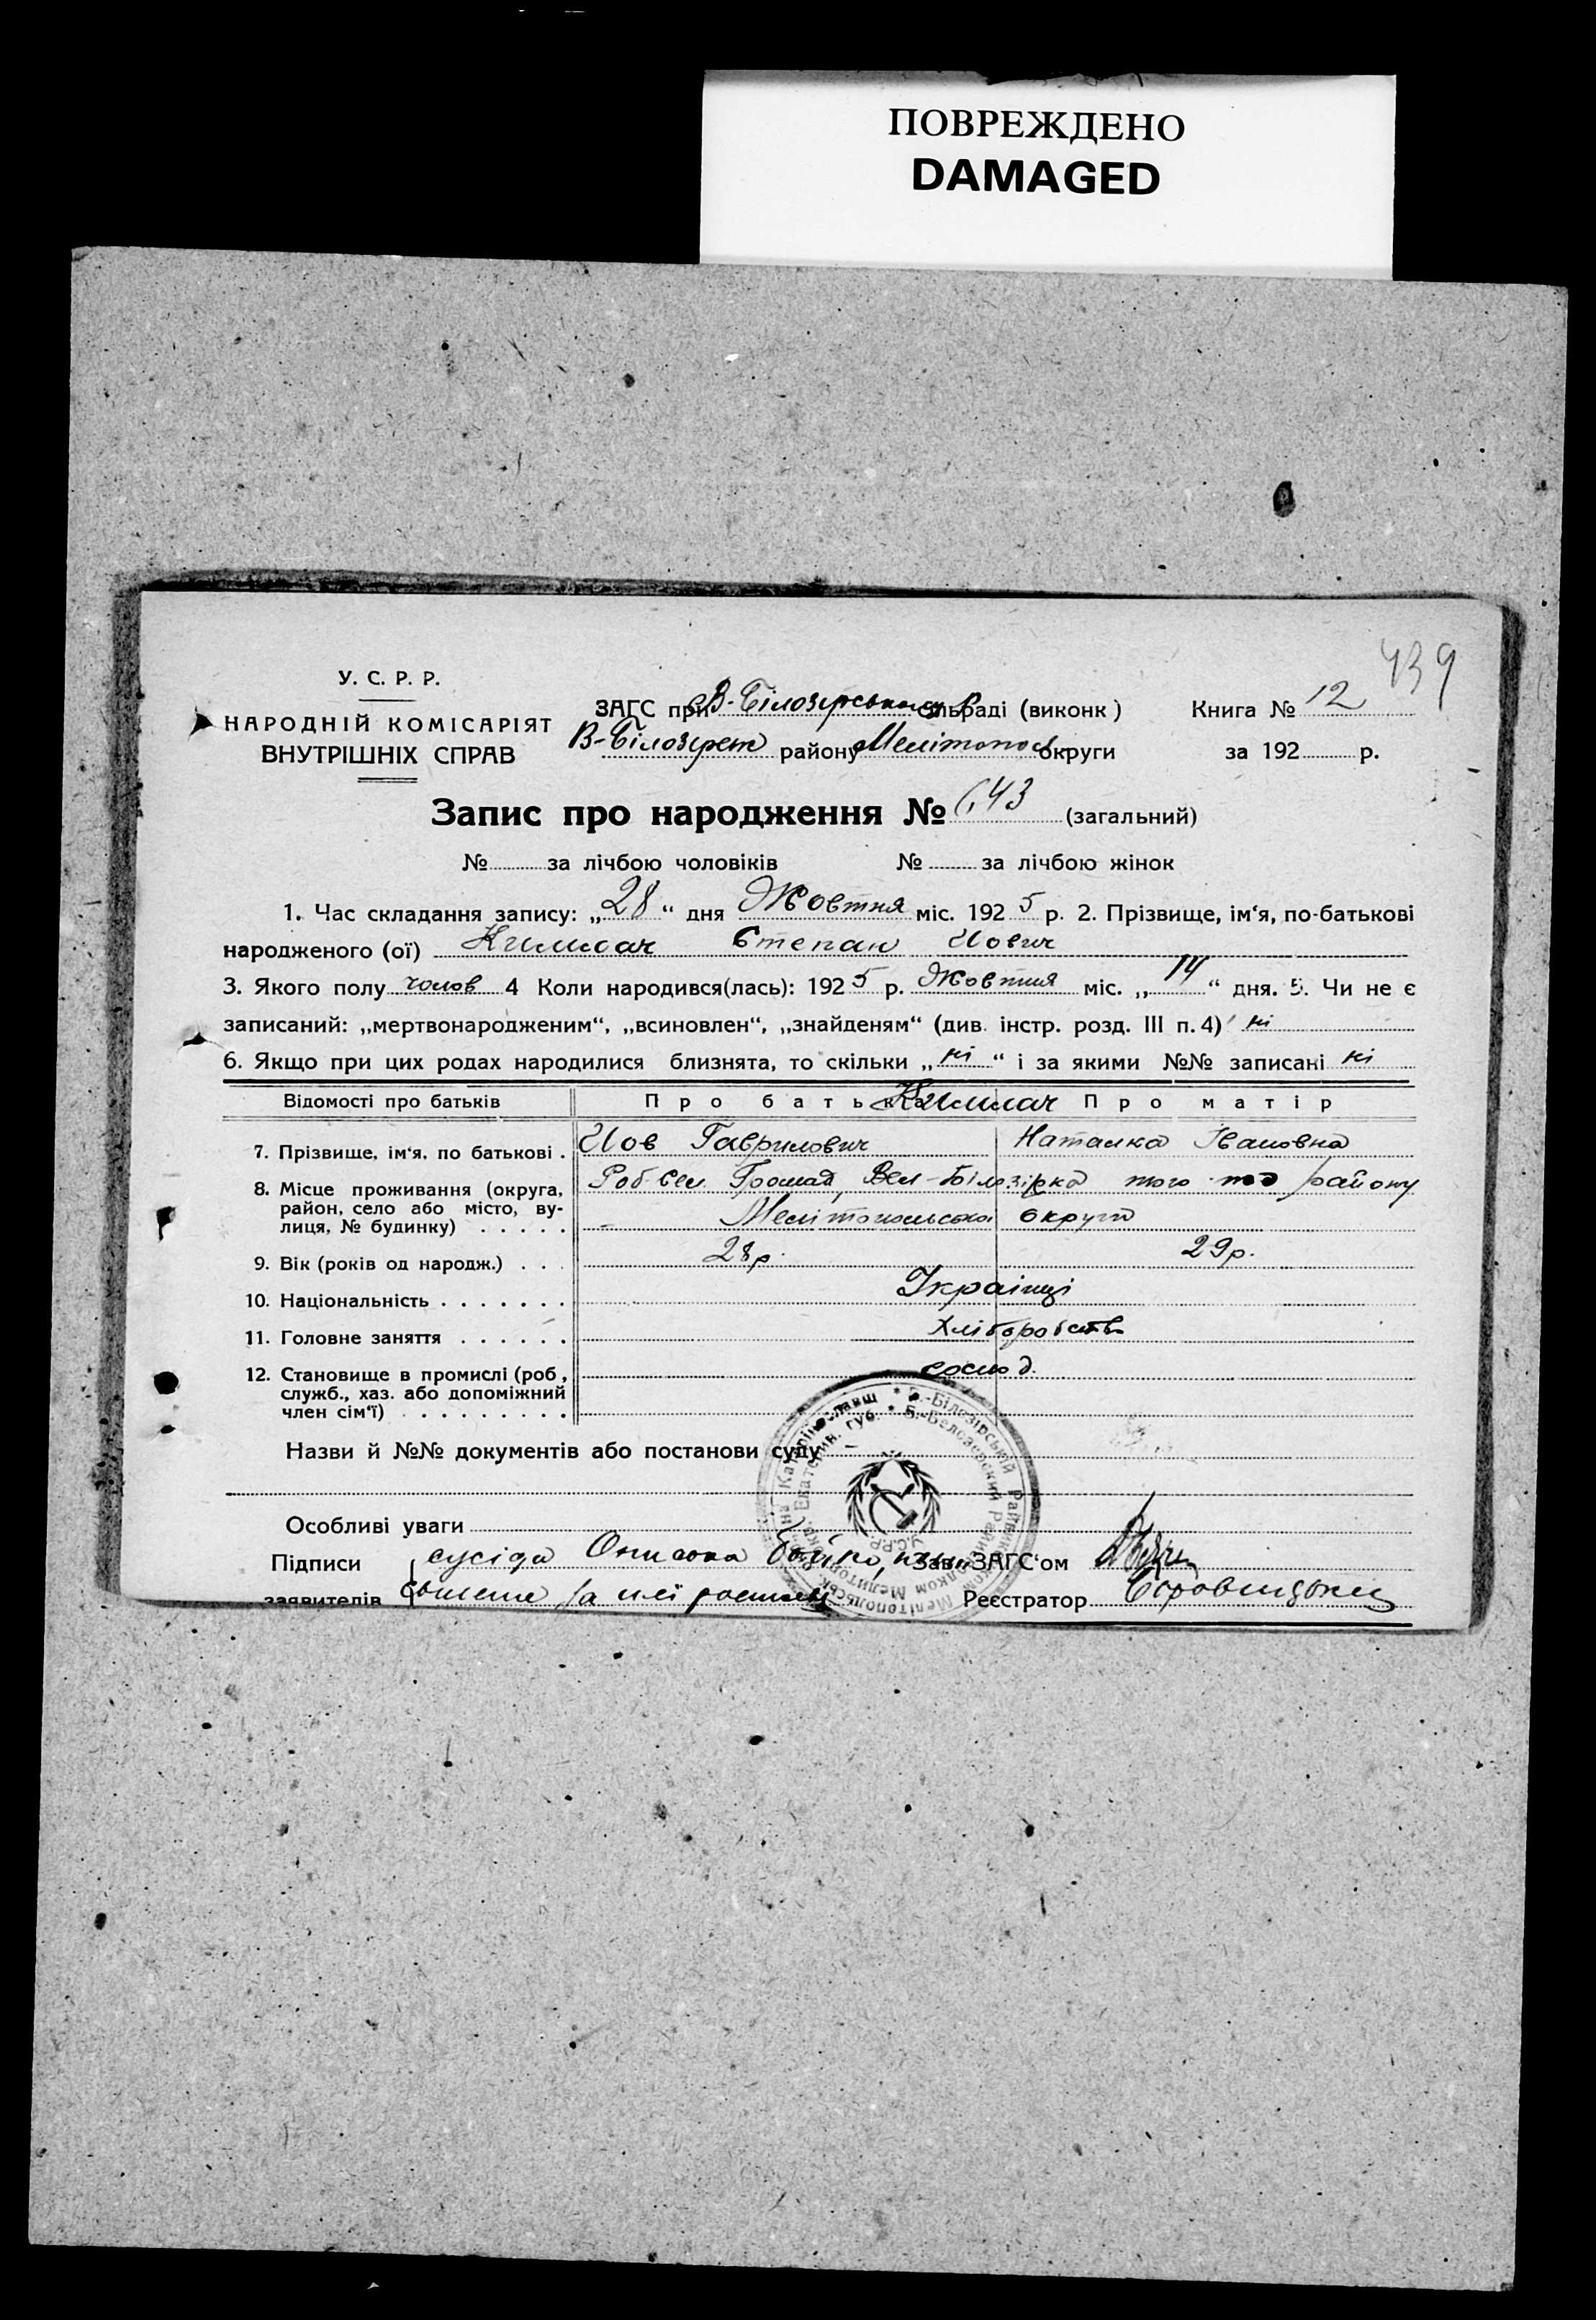 ПОВРЕЖДЕНО
DAMAGED
439
У. С. Р. Р.
НАРОДНІЙ КОМІСАРІЯТ
ВНУТРІШНІХ СПРАВ
ЗАГС при В-Білозірськ сільраді (виконк) Книга № 12
В-Білозірськ району Мелітопол округи за 192 р.
Запис про народження № 643 (загальний)
№ за лічбою чоловіків № за лічбою жінок
1. Час складання запису: „28“ дня Жовтня міс. 1925 р. 2. Прізвище, ім‘я, по-батькові
народженого (ої) Степан Иович
3. Якого полу чолов 4 Коли народився(лась): 1925 р. Жовтня міс. „14“ дня. 5. Чи не є
записаний: „мертвонародженим“, „всиновлен“, „знайденям“ (див. інстр. розд. III п. 4) ні
6. Якщо при цих родах народилися близнята, то скільки „ні“ і за якими №№ записані ні
Відомості про батьків Про батька Про матір
7. Прізвище, ім‘я, по батькові . Иов Гаврилович Наталка Івановна
8. Місце проживання (округа, Роб-Сел. Громад, Вел-Білозірка того-то району
район, село або місто, ву- Мелітопольська округа
лиця, № будинку) . . . . .
9. Вік (років од народж.) . . . 28 р. 29 р.
10. Національність . . . . . . . Українці
11. Головне заняття . . . . . . Хліборобств
12. Становище в промислі (роб,
служб., хаз. або допоміжний
член сім‘ї) . . . . . . . . .
Назви й №№ документів або постанови суду
Особливі уваги
Підписи сусіда Бойко, Зав. ЗАГС‘ом
заявителів Реєстратор